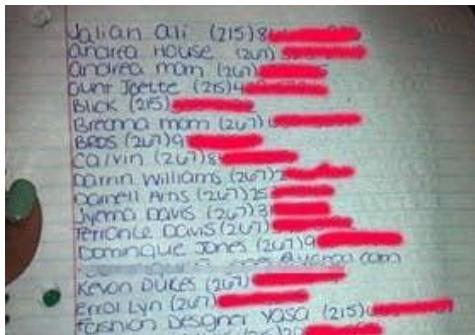 Jalian Ali (215)8
Andrea House (267)
Andrea mom (267)
Aunt Joette (215)4
Blick (215)
Breanna mom (267)
BROS (267)9
Calvin (267)8
Darrin Williams (267)2
Darnell Ams (267)25
Jyema Davis (267)3
Terrance Davis (267)
Dominique Jones (267)9
com
Kevon DUKES (267)
Errol Lyn (267)
Fashion Designer Yasa (215)